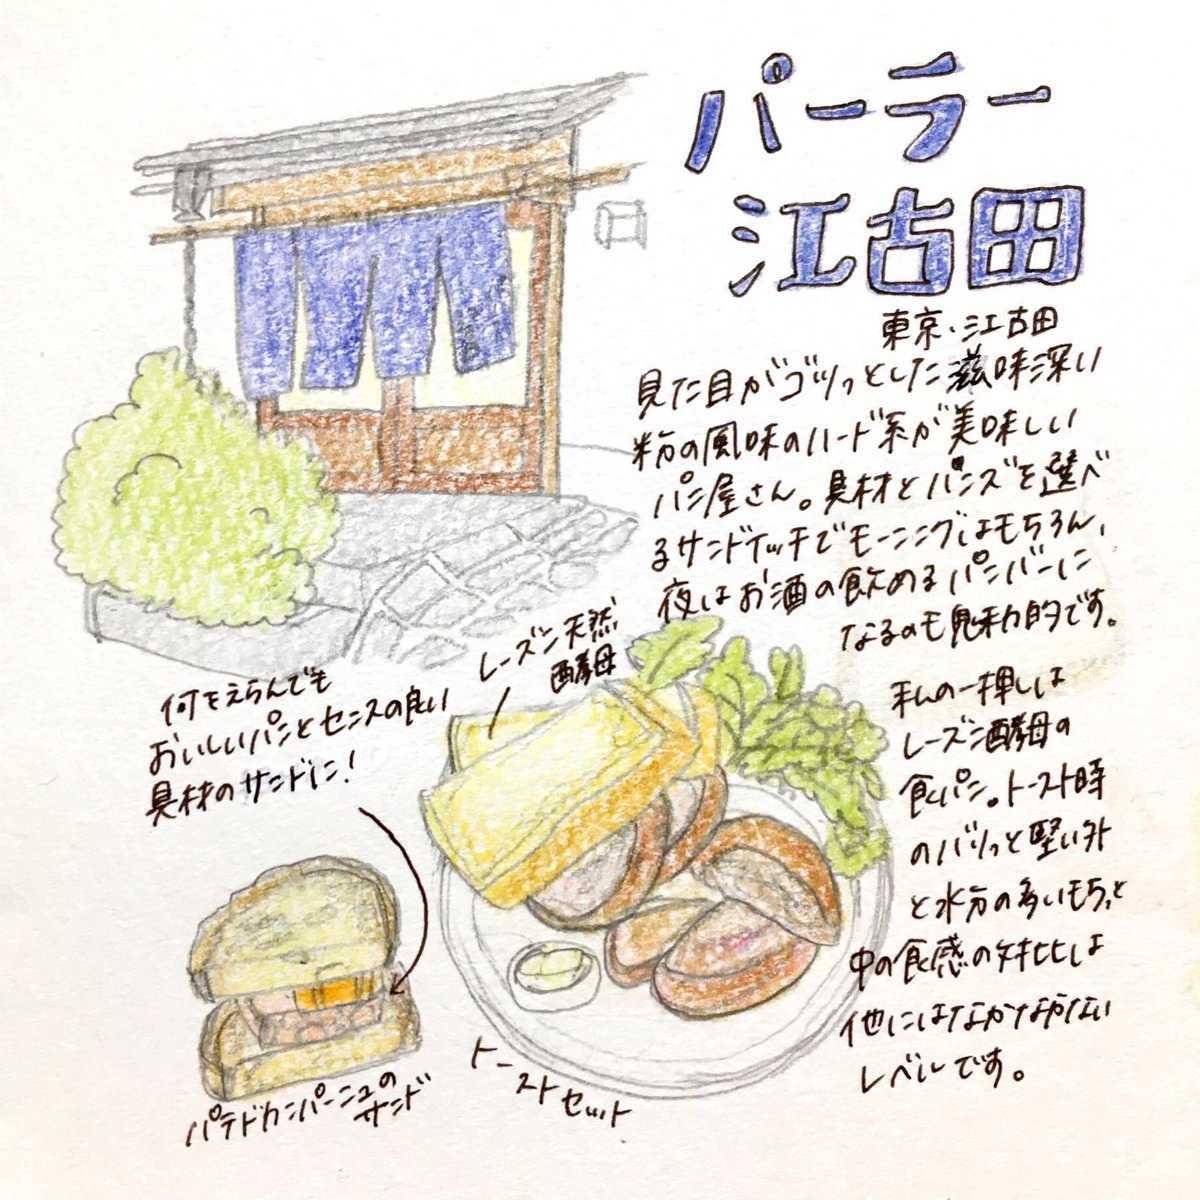 パーラー
江古田
東京・江古田
見た目がゴツっとした滋味深い
粉の風味のハード系が美味しい
パン屋さん。具材とパンズを選べ
るサンドイッチでモーニングはもちろん、
夜はお酒の飲めるパンバーに
なるのも魅力的です。
レーズン天然
酵母
何をえらんでも
おいしいパンとセンスの良い
具材のサンドに!
私の一押しは
レーズン酵母の
食パン。トースト時
のバリっと堅い外
と水分の多いもちっと
中の食感の対比は
他にはなかなかない
レベルです。
トーストセット
パテドカンパーニュの
サンド